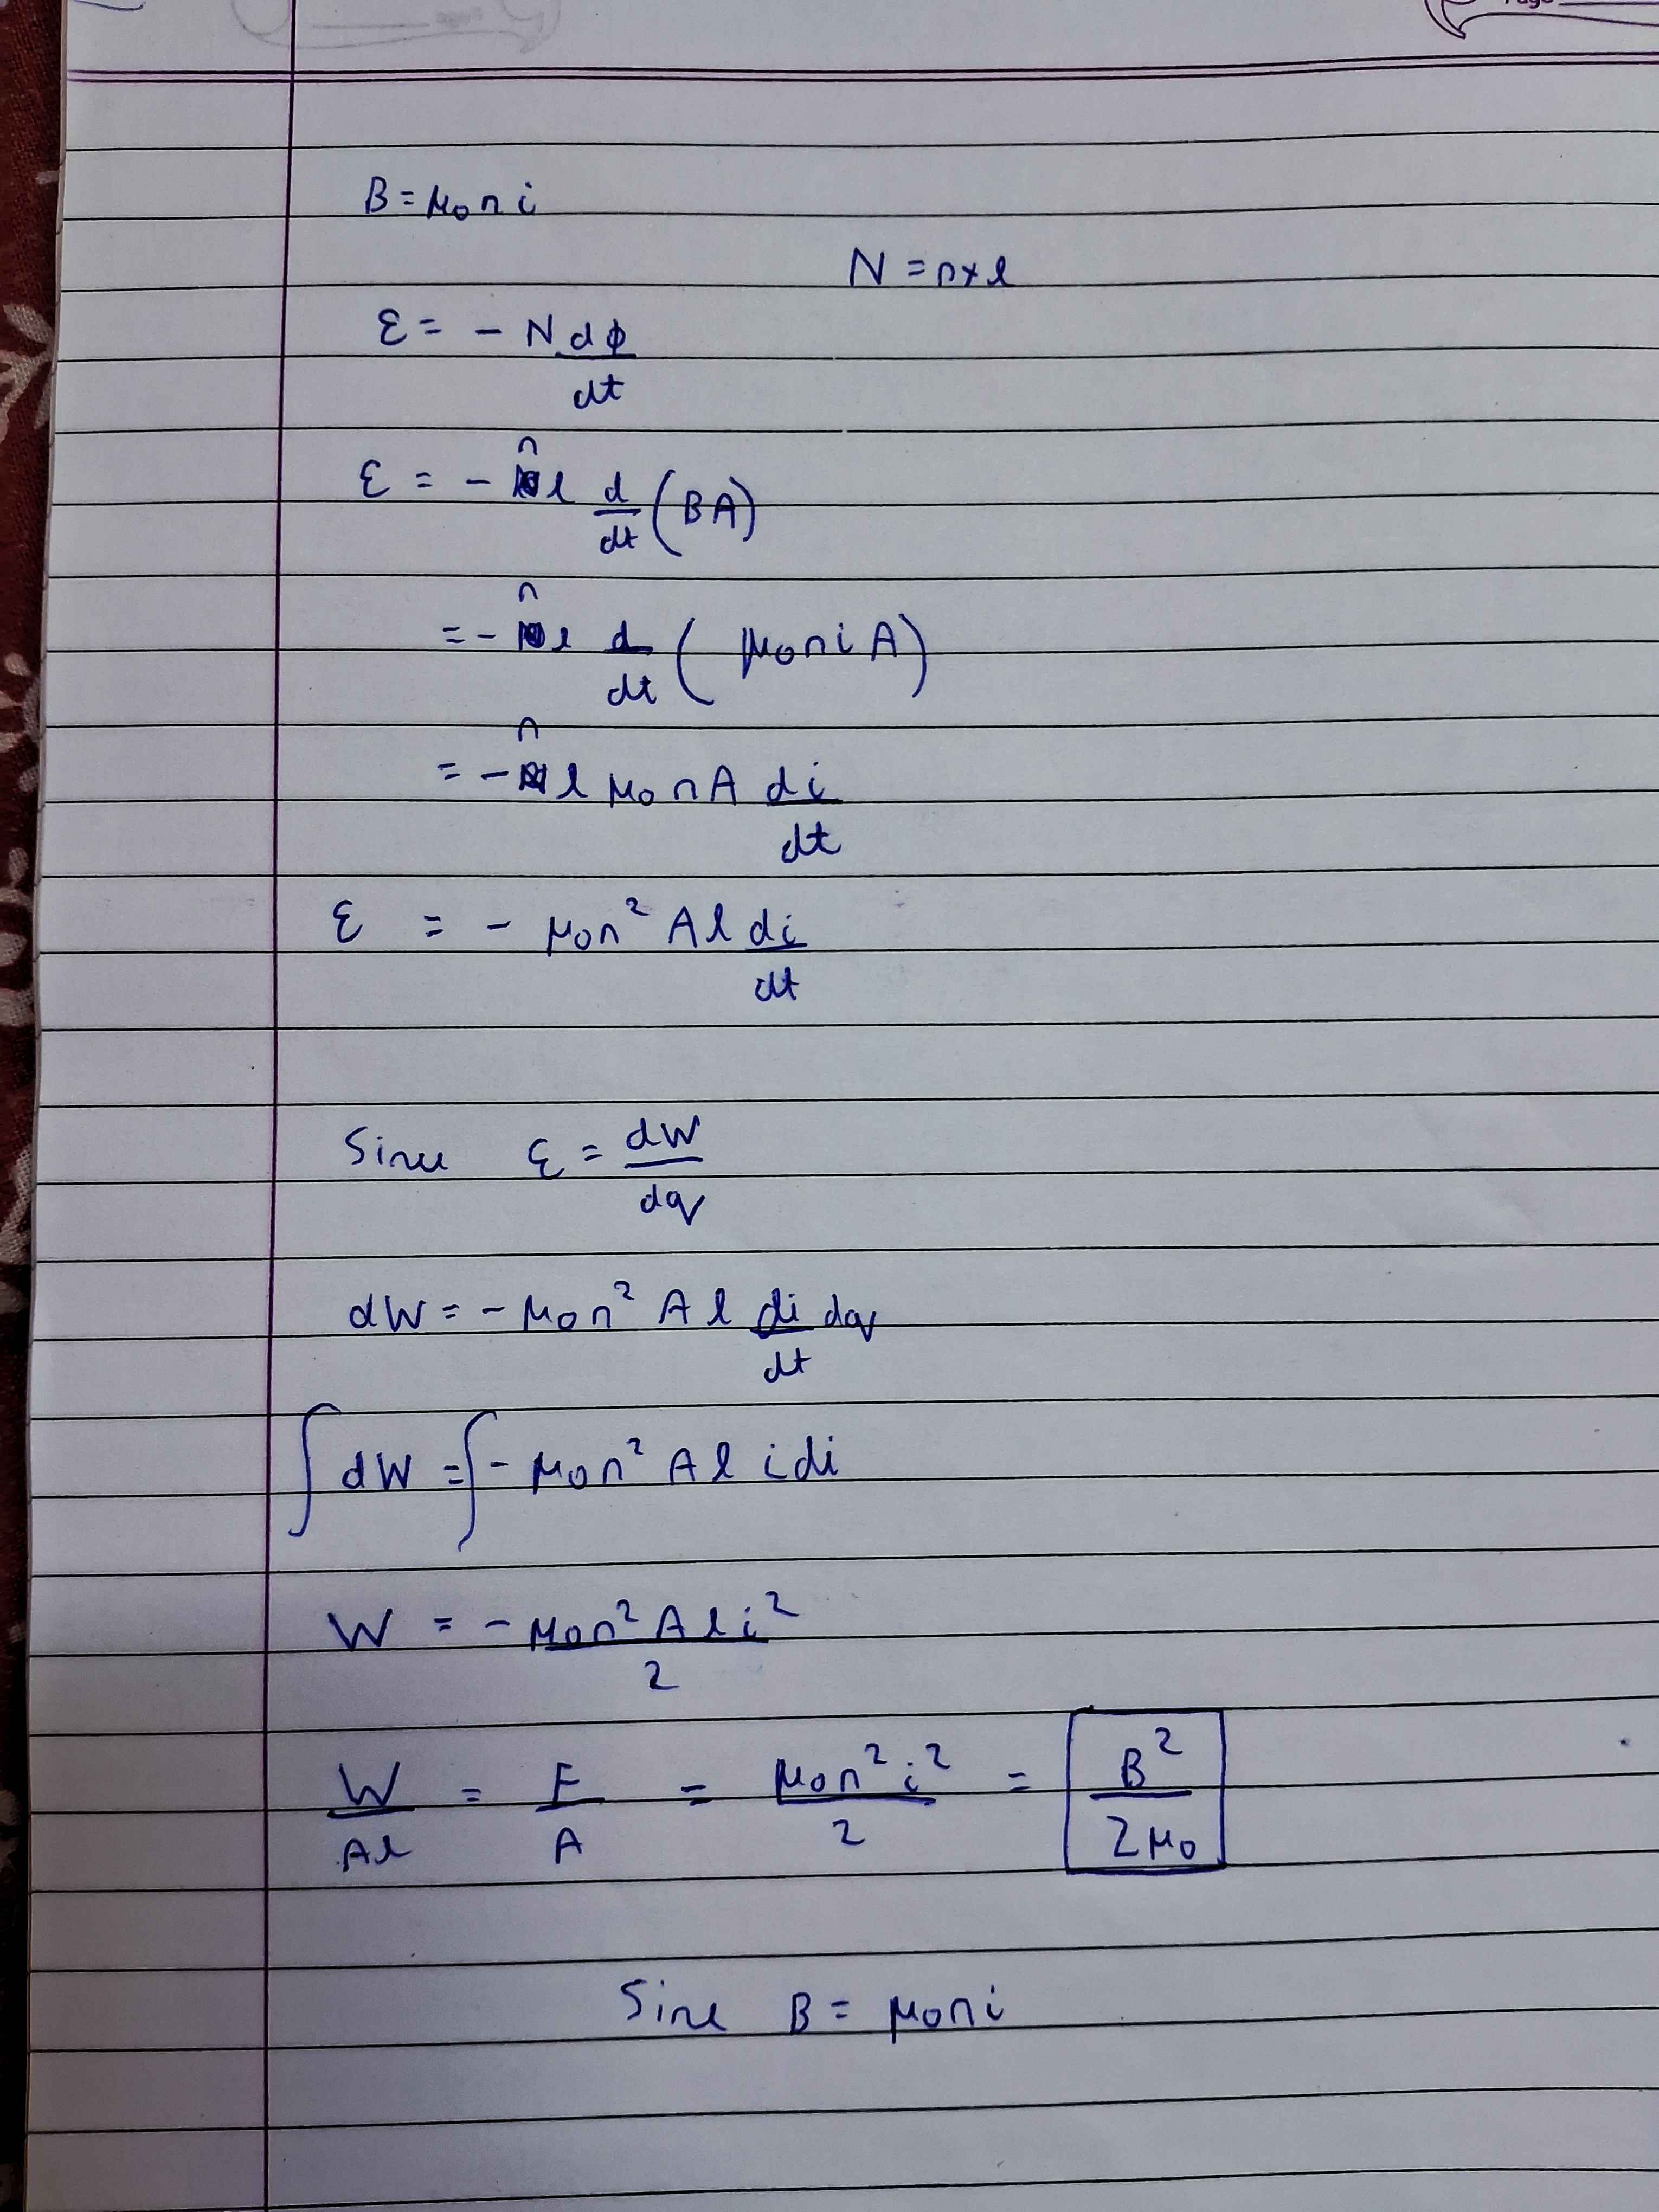 Page
B = μ₀ n i
N = n × l
ε = - N dφ/dt
ε = - n l d/dt (BA)
= - n l d/dt ( μ₀ n i A)
= - n l μ₀ n A di/dt
ε = - μ₀n² A l di/dt
Sine ε = dW/dq
dW = - μ₀n² A l di/dt dq
∫ dW = ∫ - μ₀n² A l i di
W = - μ₀n² A l i²/2
W/Al = F/A = μ₀n² i²/2 = B²/2μ₀
Sine B = μ₀ni